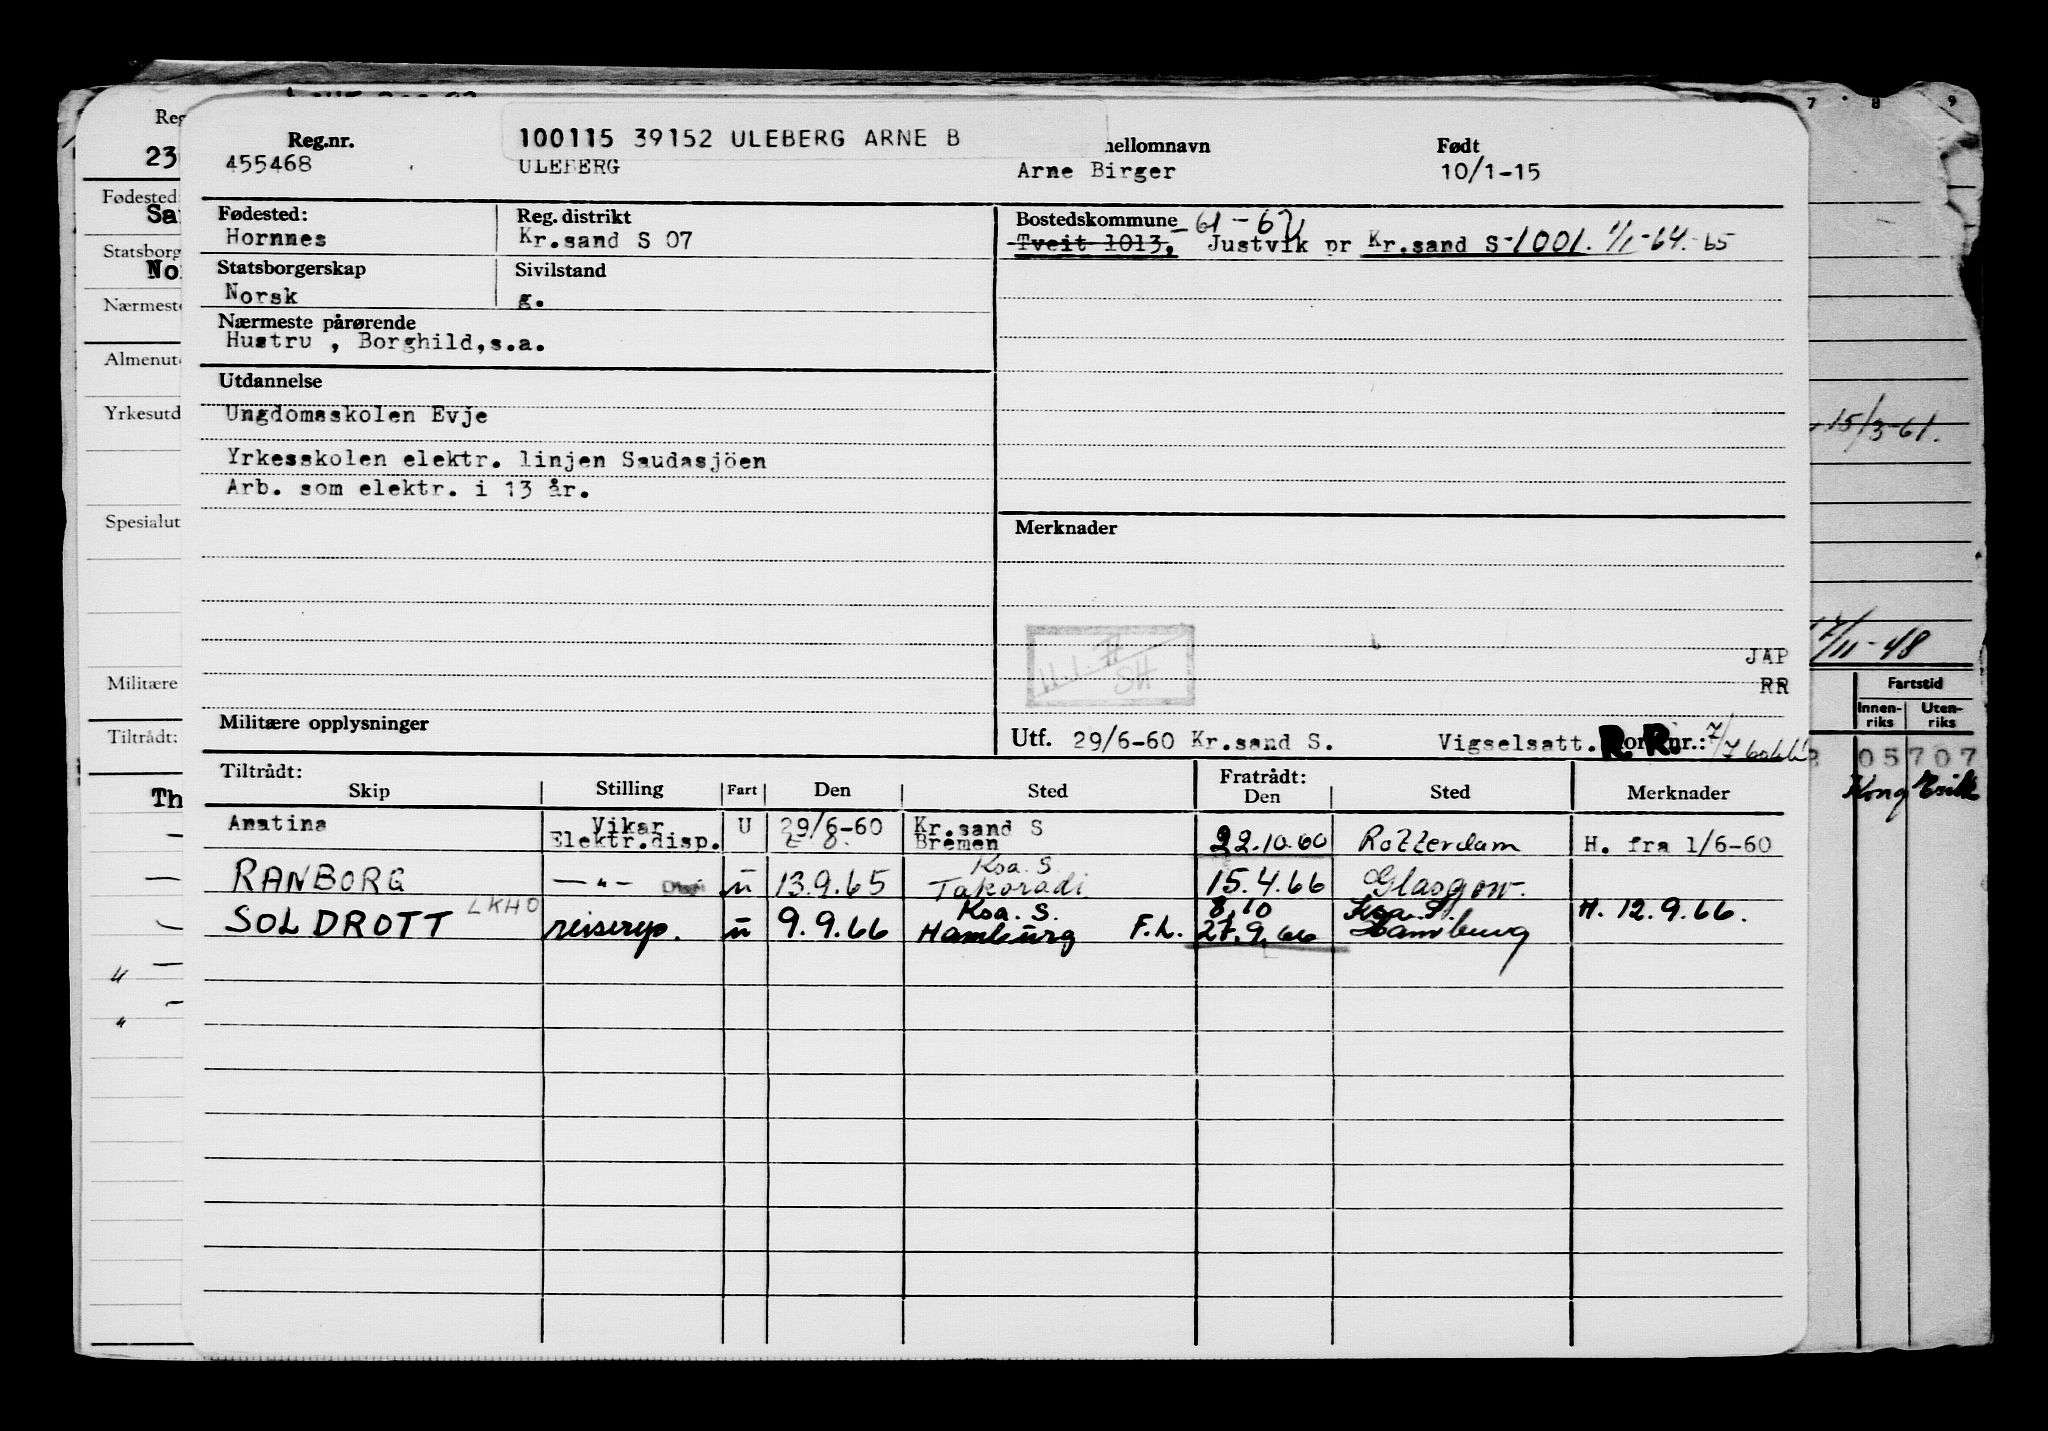 Reg.nr. 100115 39152 ULEBERG ARNE B mellomnavn Født
455468 ULEBERG Arne Birger 10/1-15
Fødested: Reg. distrikt Bostedskommune - 61 - 62
Hornnes Kr.sand S 07 Tveit 1013, Justvik pr Kr.sand S-1001. 1/1-64.-65
Statsborgerskap Sivilstand
Norsk g.
Nærmeste pårørende
Hustru , Borghild,s.a.
Utdannelse
Ungdomsskolen Evje
Yrkesskolen elektr. linjen Saudasjöen
Arb. som elektr. i 13 år.
Merknader
H.I. SH
JAP
RR
Militære opplysninger
Utf. 29/6-60 Kr.sand S. Vigselsatt. R. R. nr.: 7/7
Tiltrådt: Fratrådt:
Skip Stilling Fart Den Sted Den Sted Merknader
Amatina Vikar Elektr.disp. U 29/6-60 Kr.sand S Bremen 22.10.60 Rotterdam H. fra 1/6-60
RANBORG — " — u 13.9.65 Ksa. S. Takoradi 15.4.66 Glasgow.
SOLDROTT LKHO reiserep. u 9.9.66 Ksa. S. Hamburg F.L. 8.10 27.9.66 Ksa. S. Hamburg H. 12.9.66.
Reg
23
Fødested:
Sa
Statsborg
No
Nærmeste
Almenut
Yrkesutd
Spesialut
Militære
Tiltrådt:
Th
7 8 9
15/3-61.
17/11-48
Fartstid
Innen-riks Uten-riks
05707
Kong Eirik